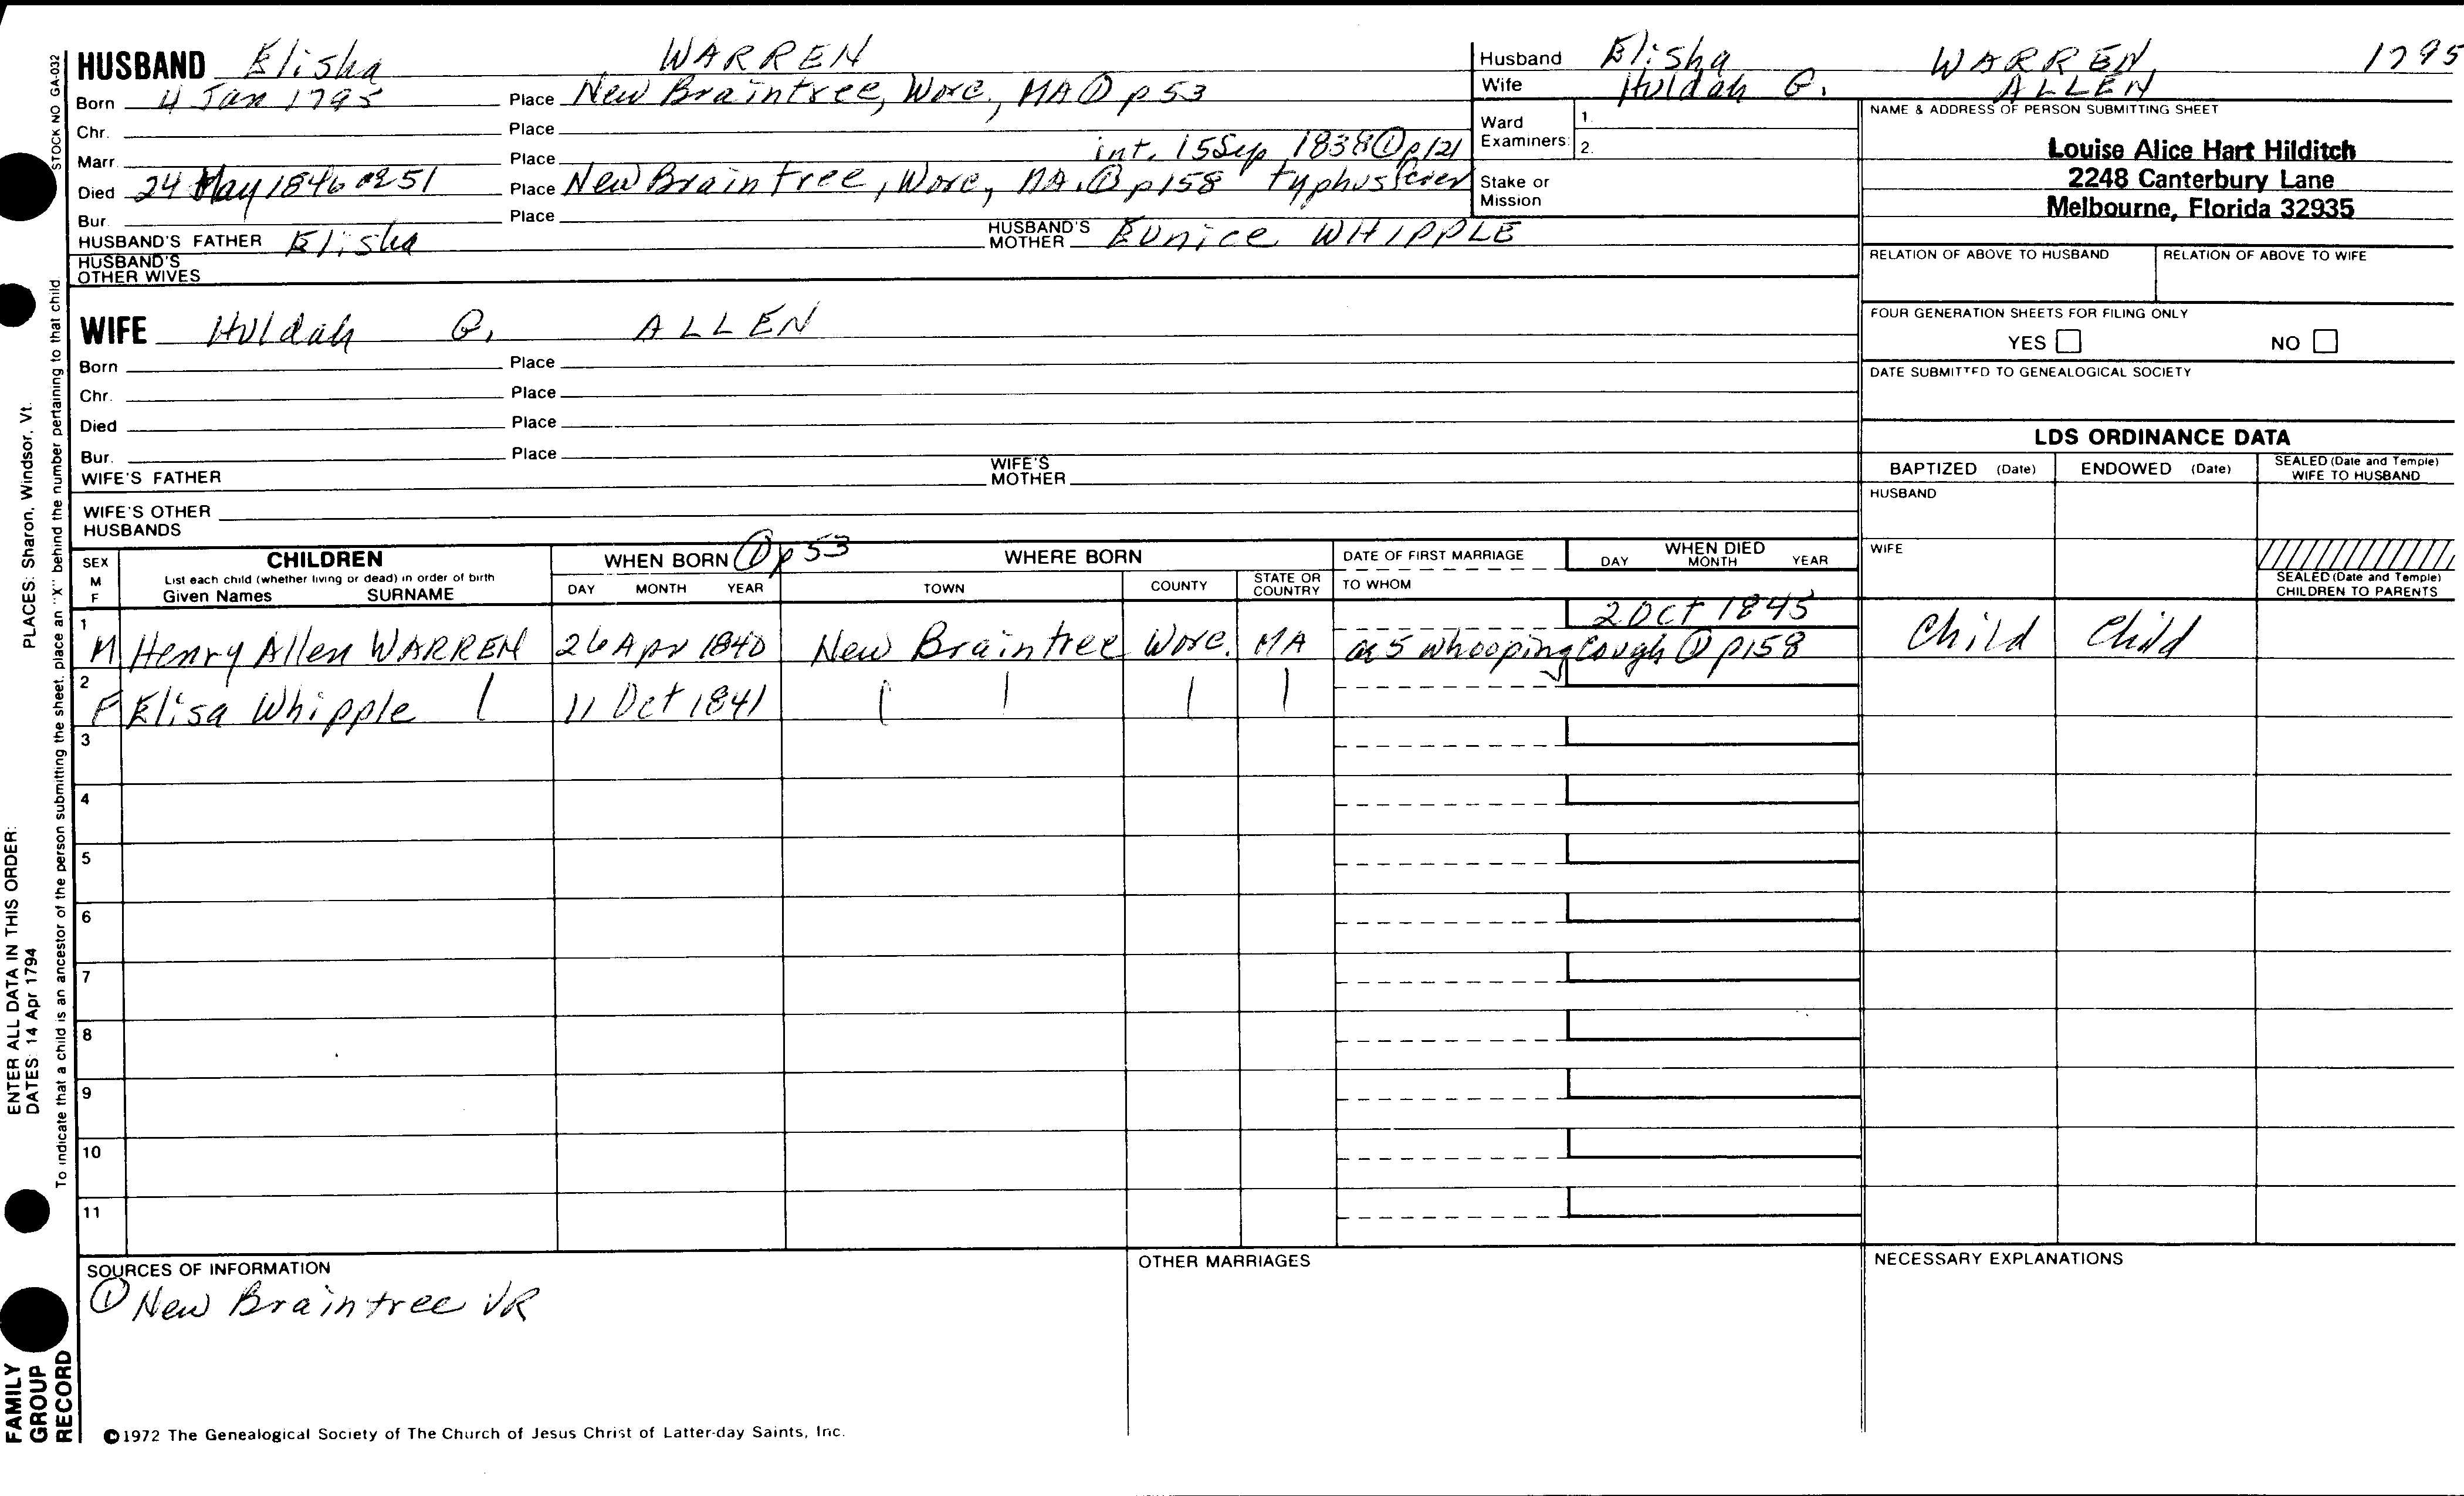 HUSBAND Elisha WARREN
Born 4 Jan 1795 Place New Braintree, Worc., MA ① p 53
Chr. Place
Marr. Place int. 15 Sep 1838 ① p121
Died 24 May 1846 ae 51 Place New Braintree, Worc, MA. ① p158 typhus fever
Bur. Place
HUSBAND'S FATHER Elisha HUSBAND'S MOTHER Eunice WHIPPLE
HUSBAND'S OTHER WIVES
WIFE Huldah G. ALLEN
Born Place
Chr. Place
Died Place
Bur. Place
WIFE'S FATHER WIFE'S MOTHER
WIFE'S OTHER HUSBANDS
Husband Elisha WARREN 1795
Wife Huldah G. ALLEN
Ward Examiners: 1. 2.
Stake or Mission
NAME & ADDRESS OF PERSON SUBMITTING SHEET
Louise Alice Hart Hilditch
2248 Canterbury Lane
Melbourne, Florida 32935
RELATION OF ABOVE TO HUSBAND RELATION OF ABOVE TO WIFE
FOUR GENERATION SHEETS FOR FILING ONLY
YES NO
DATE SUBMITTED TO GENEALOGICAL SOCIETY
LDS ORDINANCE DATA
BAPTIZED (Date) ENDOWED (Date) SEALED (Date and Temple) WIFE TO HUSBAND
HUSBAND
WIFE
SEALED (Date and Temple) CHILDREN TO PARENTS
SEX M F
CHILDREN
List each child (whether living or dead) in order of birth
Given Names SURNAME
WHEN BORN ① p 53
DAY MONTH YEAR
WHERE BORN
TOWN COUNTY STATE OR COUNTRY
DATE OF FIRST MARRIAGE
TO WHOM
WHEN DIED
DAY MONTH YEAR
2 Oct 1845
1 M Henry Allen WARREN 26 Apr 1840 New Braintree Worc. MA ae 5 whooping cough ① p158 Child Child
2 F Elisa Whipple 11 Oct 1841
3
4
5
6
7
8
9
10
11
SOURCES OF INFORMATION
① New Braintree VR
OTHER MARRIAGES
NECESSARY EXPLANATIONS
©1972 The Genealogical Society of The Church of Jesus Christ of Latter-day Saints, Inc.
STOCK NO GA-032
To indicate that a child is an ancestor of the person submitting the sheet, place an "X" behind the number pertaining to that child
ENTER ALL DATA IN THIS ORDER:
PLACES: Sharon, Windsor, Vt.
DATES: 14 Apr 1794
FAMILY
GROUP
RECORD